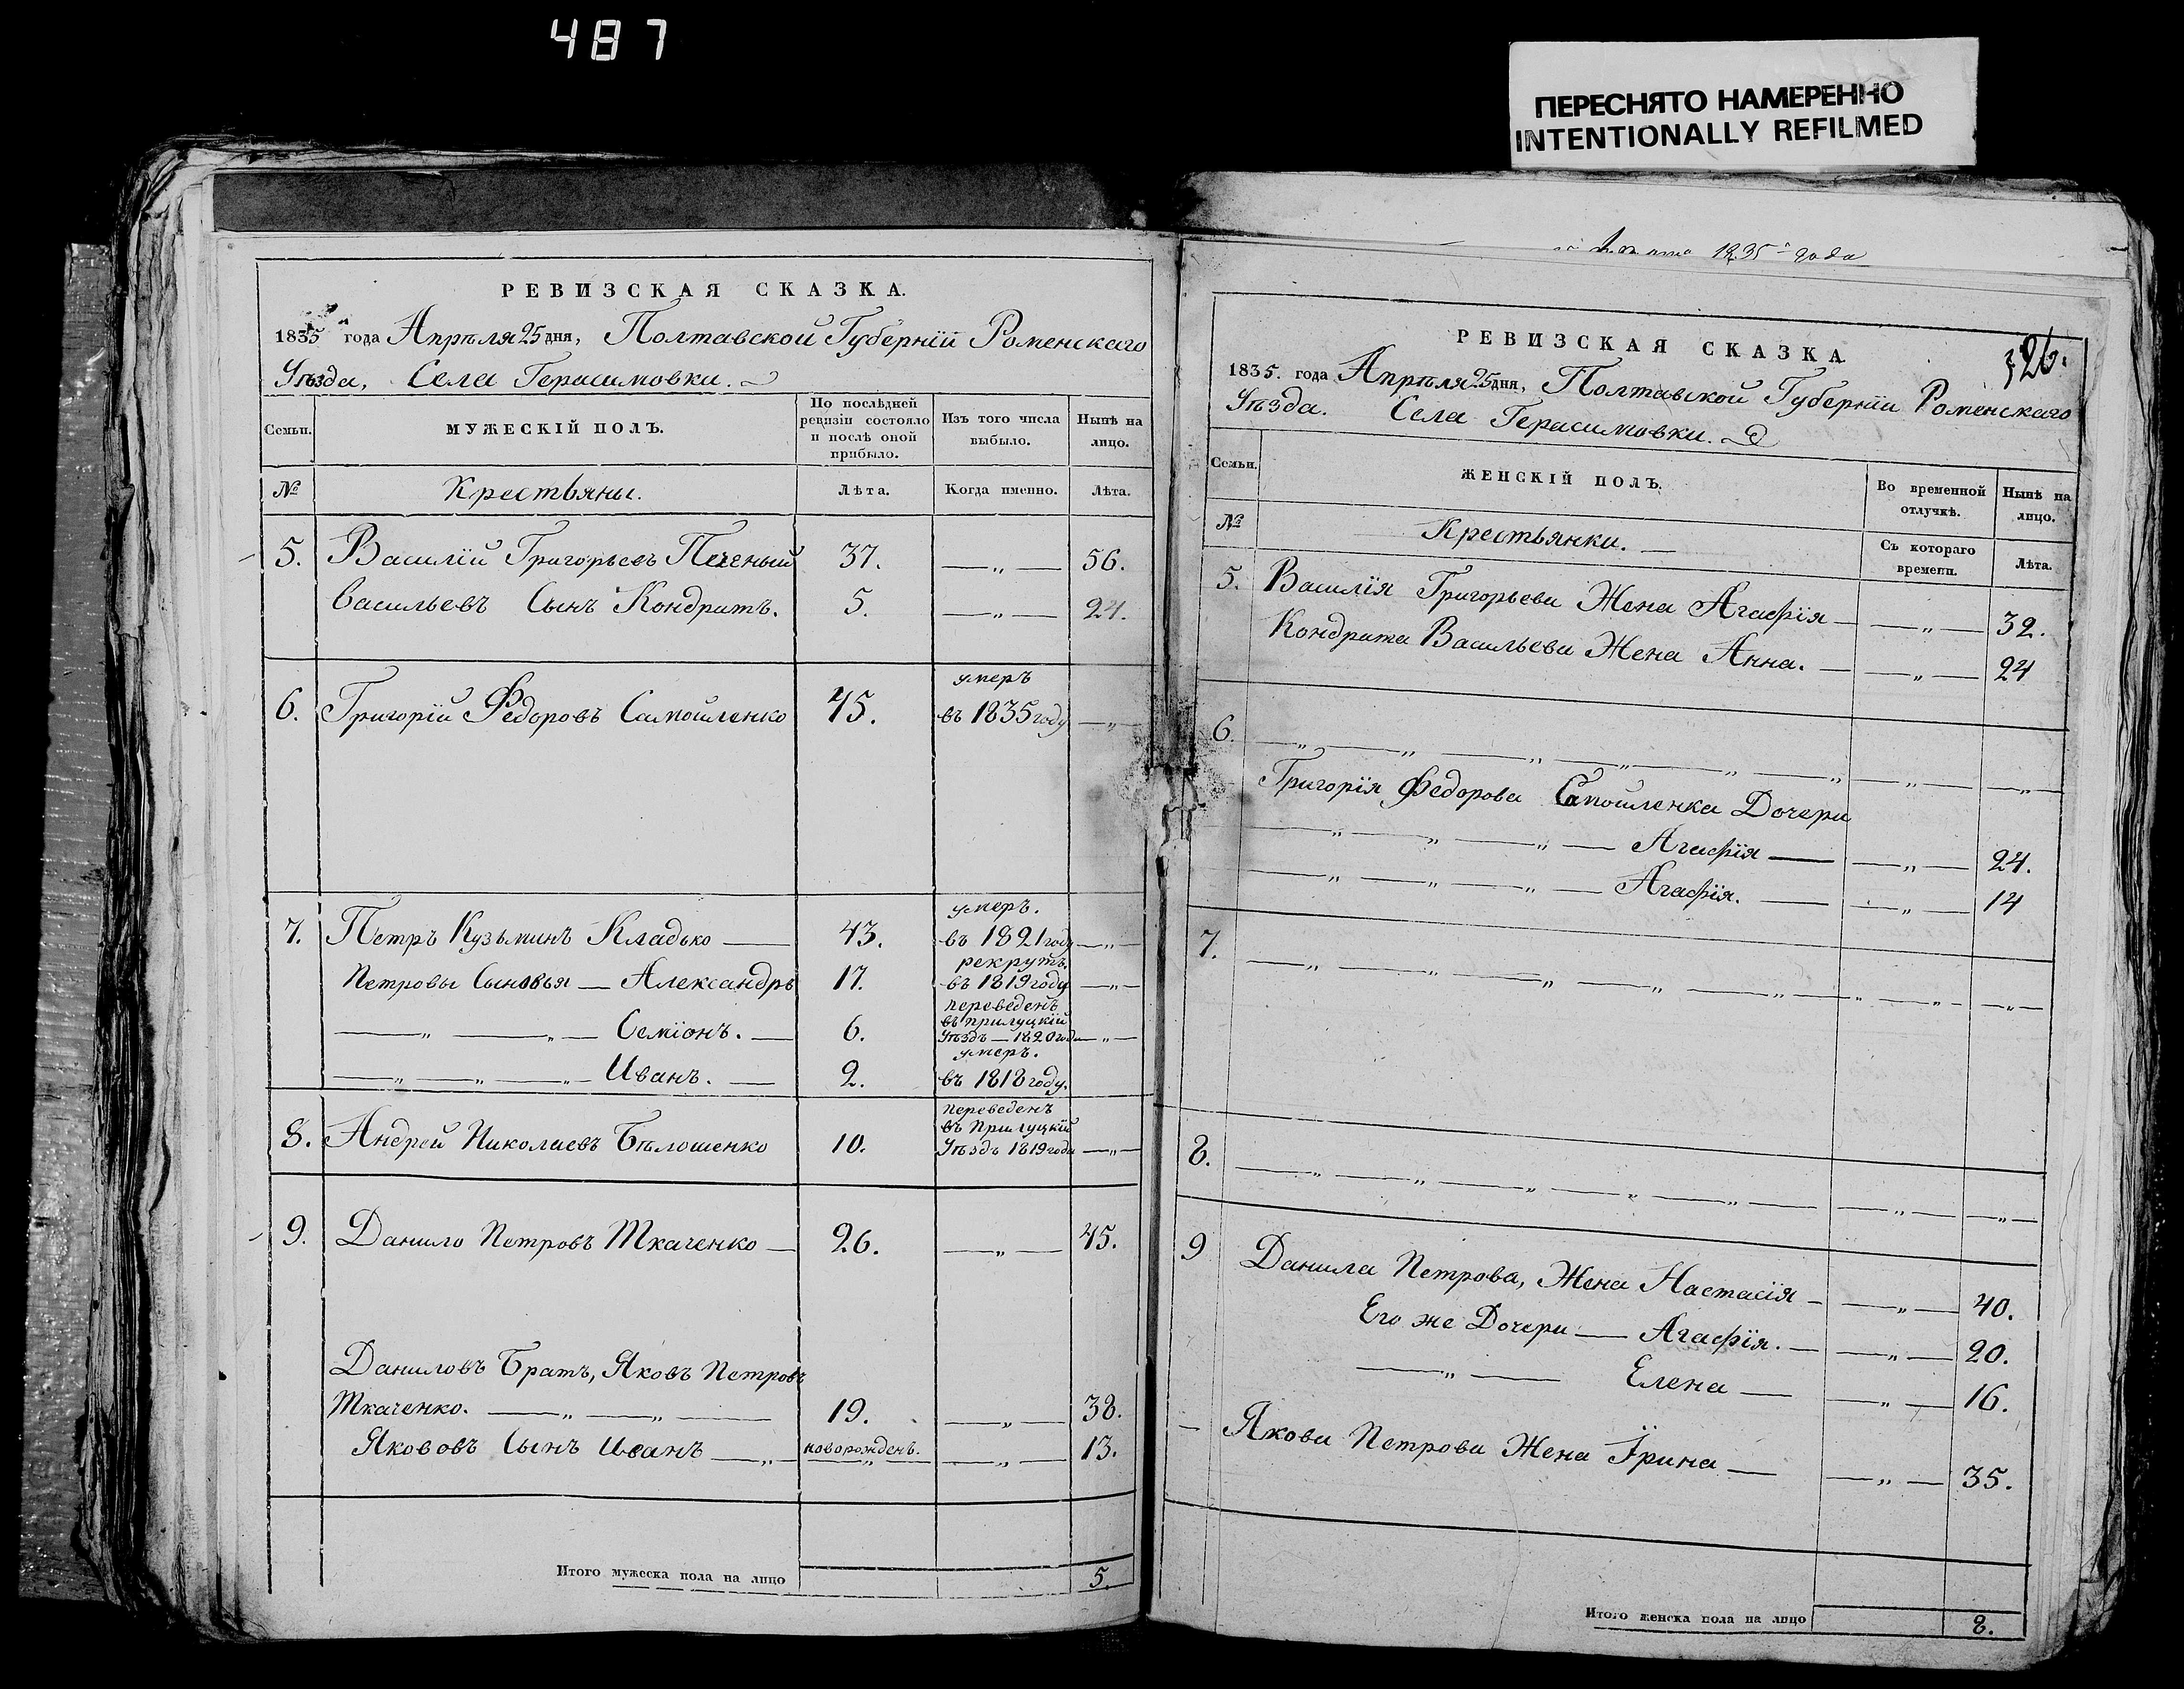 487
ПЕРЕСНЯТО НАМЕРЕННО
INTENTIONALLY REFILMED
РЕВИЗСКАЯ СКАЗКА.
1835 года Апрѣля 25 дня, Полтавской Губерніи Роменскаго
Уѣзда, Села Герасимовки.
Семьи.
МУЖЕСКІЙ ПОЛЪ.
По послѣдней ревизіи состояло и послѣ оной прибыло.
Изъ того числа выбыло.
Нынѣ на лицо.
№
Крестьяны.
Лѣта.
Когда именно.
Лѣта.
5. Василій Григорьевъ Печеный 37. —„— 56.
Васильевъ Сынъ Кондратъ. 5. —„— 24.
умеръ
6. Григорій Федоровъ Самойленко 45. въ 1835 году —„
умеръ.
7. Петръ Кузьминъ Кладько — 43. въ 1821 году —„—
рекрутъ.
Петровы Сыновья — Александръ 17. въ 1819 году —„—
переведенъ
въ прилуцкій
—„ —„— Семіонъ. — 6. Уѣздъ — 1820 года —„—
умеръ.
—„—„—„— Иванъ. — 2. въ 1818 году.
переведенъ
въ Прилуцкій
8. Андрей Николаевъ Бѣлошенко 10. Уѣздъ 1819 года —„—
9. Данило Петровъ Ткаченко — 26. —„— 45.
Даниловъ Братъ, Яковъ Петровъ
Ткаченко. —„—„— 19. —„— 38.
Якововъ Сынъ Иванъ —„— новорожденъ. —„— 13.
Итого мужеска пола на лицо 5.
1835 года
326.
РЕВИЗСКАЯ СКАЗКА
1835. года Апрѣля 25 дня, Полтавской Губерніи Роменскаго
Уѣзда. Села Герасимовки.
Семьи.
ЖЕНСКІЙ ПОЛЪ.
Во временной отлучкѣ.
Нынѣ на лицо.
№
Крестьянки. —
Съ котораго времени.
Лѣта.
5. Василія Григорьева Жена Агафія — —„— 32.
Кондрата Васильева Жена Анна. — —„— 24
6. —„—„—„—„—„—„—„—„—
Григорія Федорова Самойленка Дочери
—„—„—„— Агафія — —„— 24.
—„—„—„— Агафія. — —„— 14
7. —„—„—„—„—„—„—„—„—
8. —„—„—„—„—„—„—„—
9 Данила Петрова, Жена Настасія — —„— 40.
Его же Дочери — Агафія. — —„— 20.
—„— Елена — —„— 16.
— Якова Петрова Жена Ірина — —„— 35.
Итого женска пола на лицо 8.